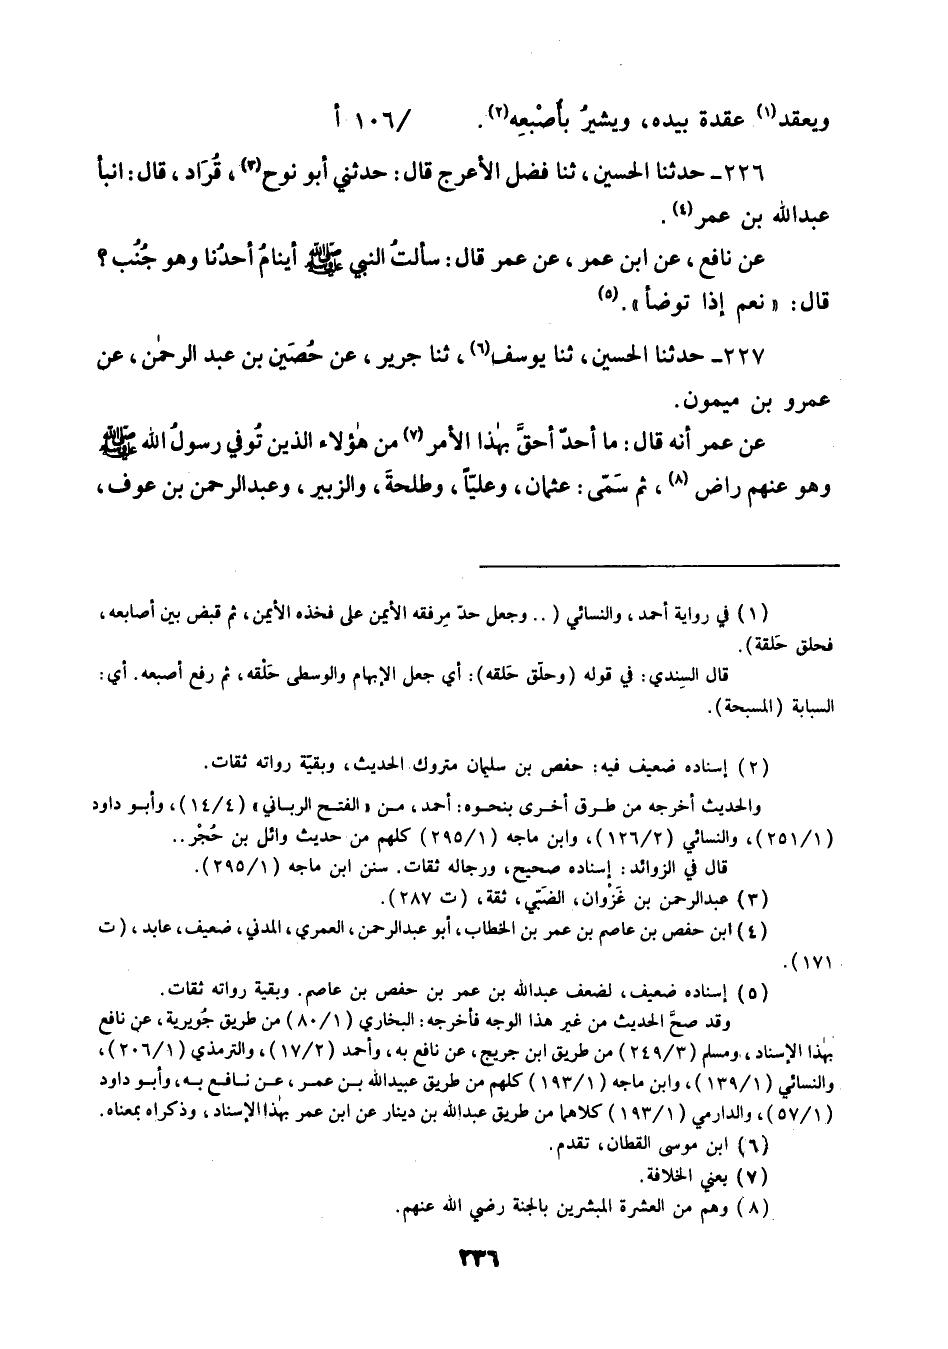 ويعقد(١) عقدة بيده، ويشيرُ بأصْبعِه(٢). /١٠٦ أ
٢٢٦ـ حدثنا الحسين، ثنا فضل الأعرج قال: حدثني أبو نوح(٣)، قُرَاد، قال: انبأ
عبدالله بن عمر(٤).
عن نافع، عن ابن عمر، عن عمر قال: سألتُ النبي ﷺ أينامُ أحدُنا وهو جُنُب؟
قال: «نعم إذا توضأ».(٥)
٢٢٧ـ حدثنا الحسين، ثنا يوسف(٦)، ثنا جرير، عن حُصَين بن عبد الرحمٰن، عن
عمرو بن ميمون.
عن عمر أنه قال: ما أحدّ أحقَّ بهٰذا الأمر(٧) من هٰؤلاء الذين تُوفي رسولُ الله ﷺ
وهو عنهم راض(٨)، ثم سَمّى: عثمان، وعليّاً، وطلحةَ، والزبير، وعبدالرحمن بن عوف،
(١) في رواية أحمد، والنسائي (.. وجعل حدّ مِرفقه الأيمن على فخذه الأيمن، ثم قبض بين أصابعه،
فحلق حَلقة).
قال السِندي: في قوله (وحلّق حَلقه): أي جعل الإبهام والوسطى حَلْقه، ثم رفع أصبعه. أي:
السبابة (المسبحة).
(٢) إسناده ضعيف فيه: حفص بن سليمان متروك الحديث، وبقيّة رواته ثقات.
والحديث أخرجه من طرق أخرى بنحوه: أحمد، من «الفتح الرباني» (١٤/٤)، وأبو داود
(٢٥١/١)، والنسائي (١٢٦/٢)، وابن ماجه (٢٩٥/١) كلهم من حديث وائل بن حُجْر..
قال في الزوائد: إسناده صحيح، ورجاله ثقات. سنن ابن ماجه (٢٩٥/١).
(٣) عبدالرحمن بن غَزْوان، الضَبّي، ثقة، (ت ٢٨٧).
(٤) ابن حفص بن عاصم بن عمر بن الخطاب، أبو عبدالرحمن، العمري، المدني، ضعيف، عابد، (ت
١٧١).
(٥) إسناده ضعيف، لضعف عبدالله بن عمر بن حفص بن عاصم. وبقية رواته ثقات.
وقد صحَّ الحديث من غير هذا الوجه فأخرجه: البخاري (٨٠/١) من طريق جُويرية، عن نافع
بهٰذا الإسناد، ومسلم (٢٤٩/٣) من طريق ابن جريج، عن نافع به، وأحمد (١٧/٢)، والترمذي (٢٠٦/١)،
والنسائي (١٣٩/١)، وابن ماجه (١٩٣/١) كلهم من طريق عبيدالله بن عمر، عن نافع به، وأبو داود
(٥٧/١)، والدارمي (١٩٣/١) كلاهما من طريق عبدالله بن دينار عن ابن عمر بهٰذا الإسناد، وذكراه بمعناه.
(٦) ابن موسى القطان، تقدم.
(٧) يعني الخلافة.
(٨) وهم من العشرة المبشرين بالجنة رضي الله عنهم.
٢٣٦